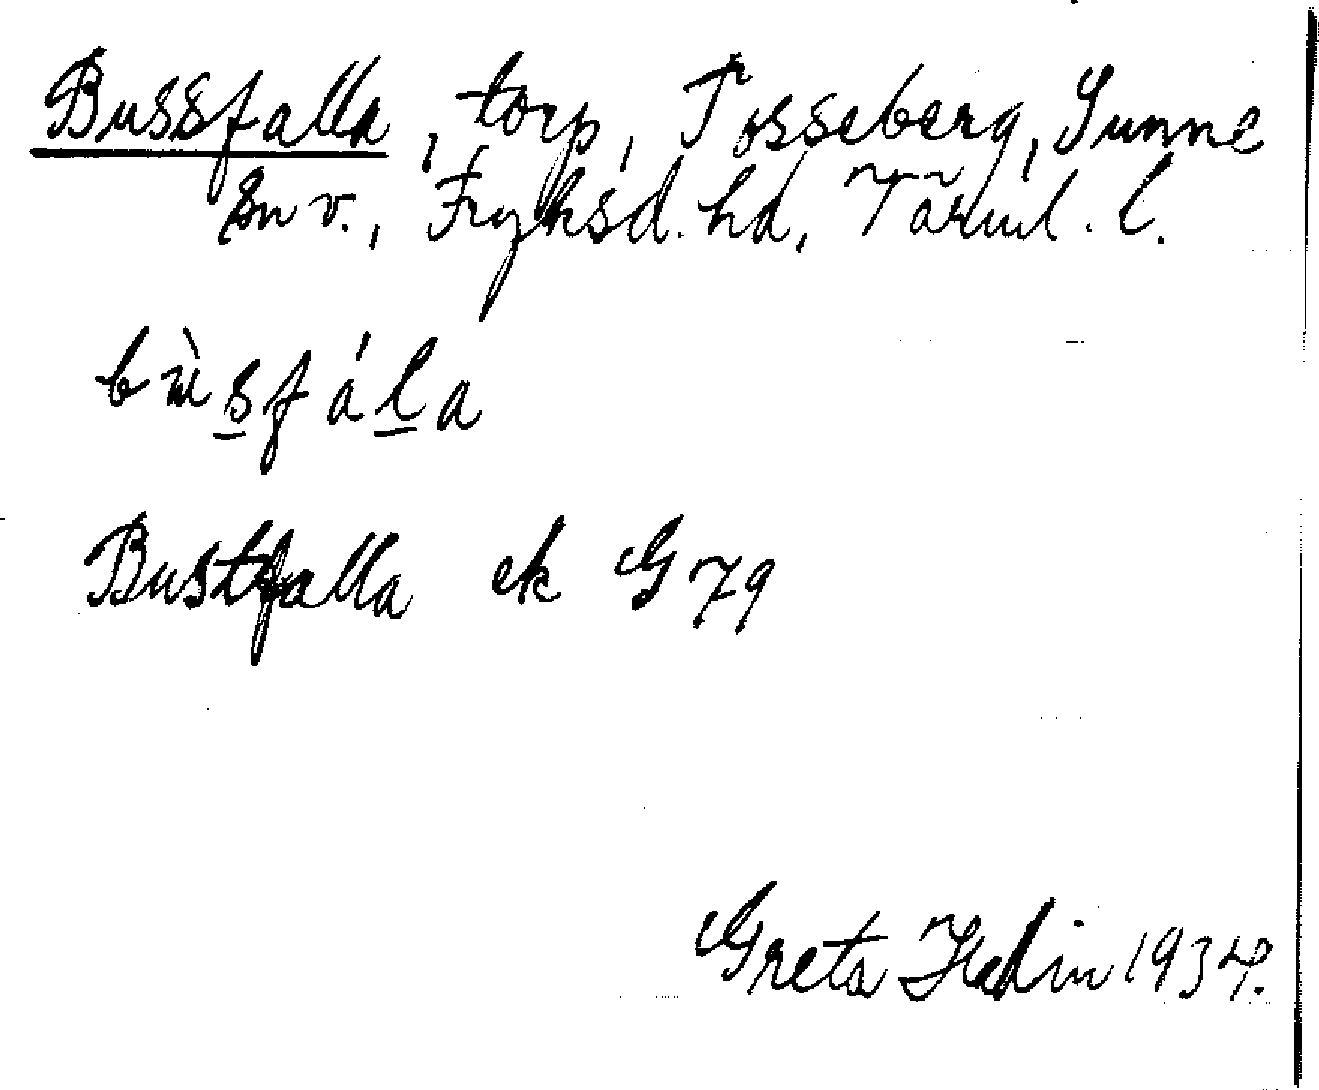 Bussfalla, torp, Tosseberg, Sunne
sn v., Fryksd. hd, Värml. l.
bùs̲fál̲a
Bustfalla ek G 79
Greta Hedin 1934.